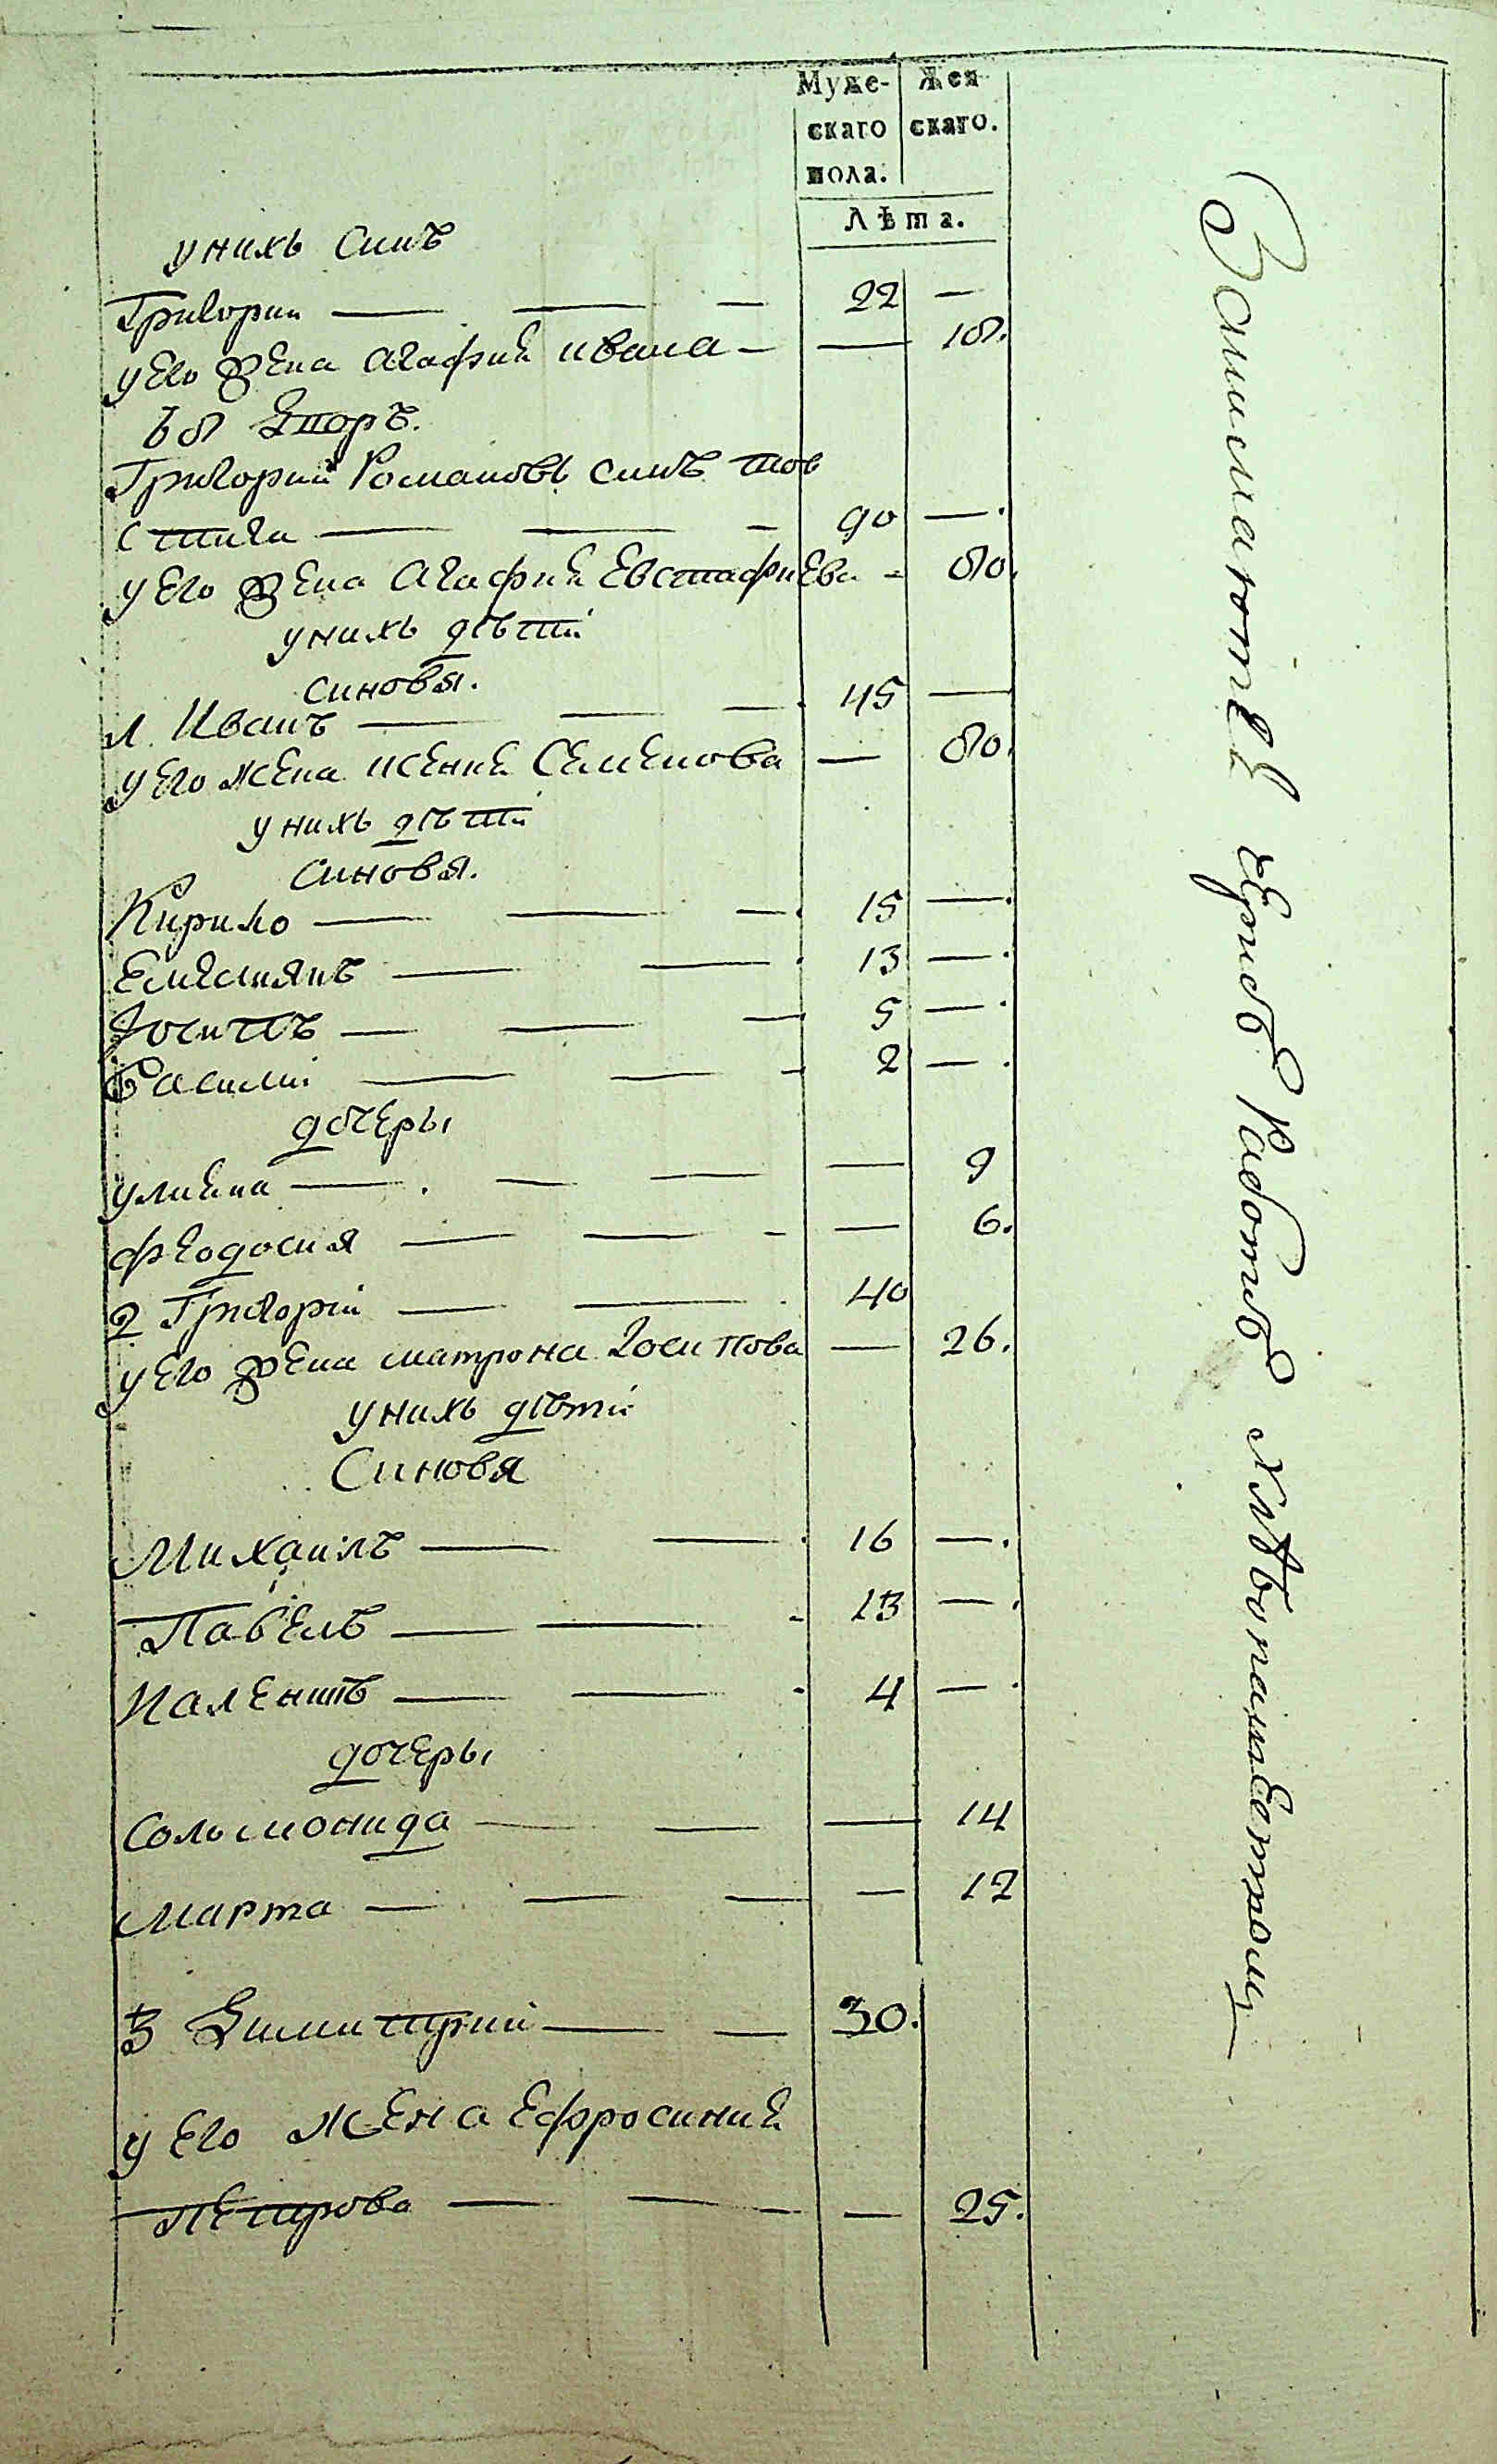 Муже-
скаго
пола.
Жен
скаго.
Лѣта.
унихъ синъ
Григории — — — 22 —
у его жена Агафия ивана — — 18.
Дворъ.
Григории Романовъ синъ тов
стига — — — 90 — .
у его жена Агафия Евстафиева - 80.
унихъ дѣти
синовя.
1. Иванъ — — — 45 —
у его жена ксения Семенова — 80.
унихъ дѣти
синовя.
Кирило — — — 15 — .
Емелиянъ — — 13 — .
Иосипъ — — — 5 — .
Василий — — - 2 — .
дочеры
улияна — . — — — 9
феодосия — — - — 6.
2 Григорий — — 40
у его жена матрона Иосипова — 26.
унихъ дѣти
Синовя
Михаилъ — — 16 — .
Павелъ — — - 13 — .
дочеры
Соломонида — — — 14
марта — — — — 12
3 Димитрий — — 30.
у его жена ефросиния
Петрова — — - — 25.
Занимаются чернѣ работѣ хлѣбопашествомъ